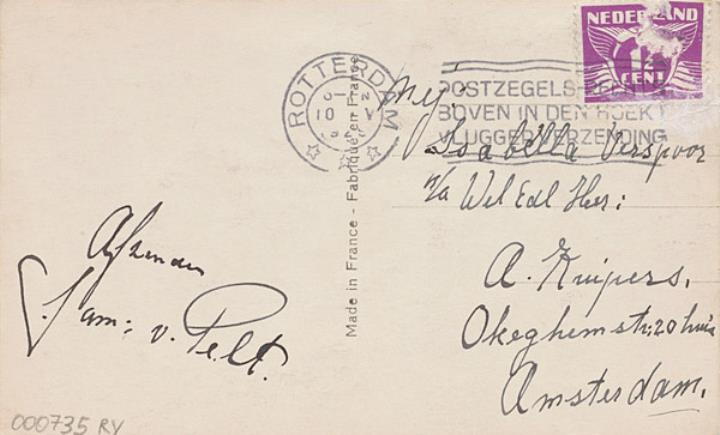 NEDERLAND
1½
CENT
ROTTERDAM
10 V
POSTZEGELS RECHTS
BOVEN IN DEN HOEK
VLUGGER VERZENDING
Made in France - Fabriqué en France
Mej.
Isabella Verspoor
p/a Wel Edl Heer:
A. Kuipers.
Okeghemstr: 20 huis
Amsterdam.
Afzender
Fam: v. Pelt.
000735 RY